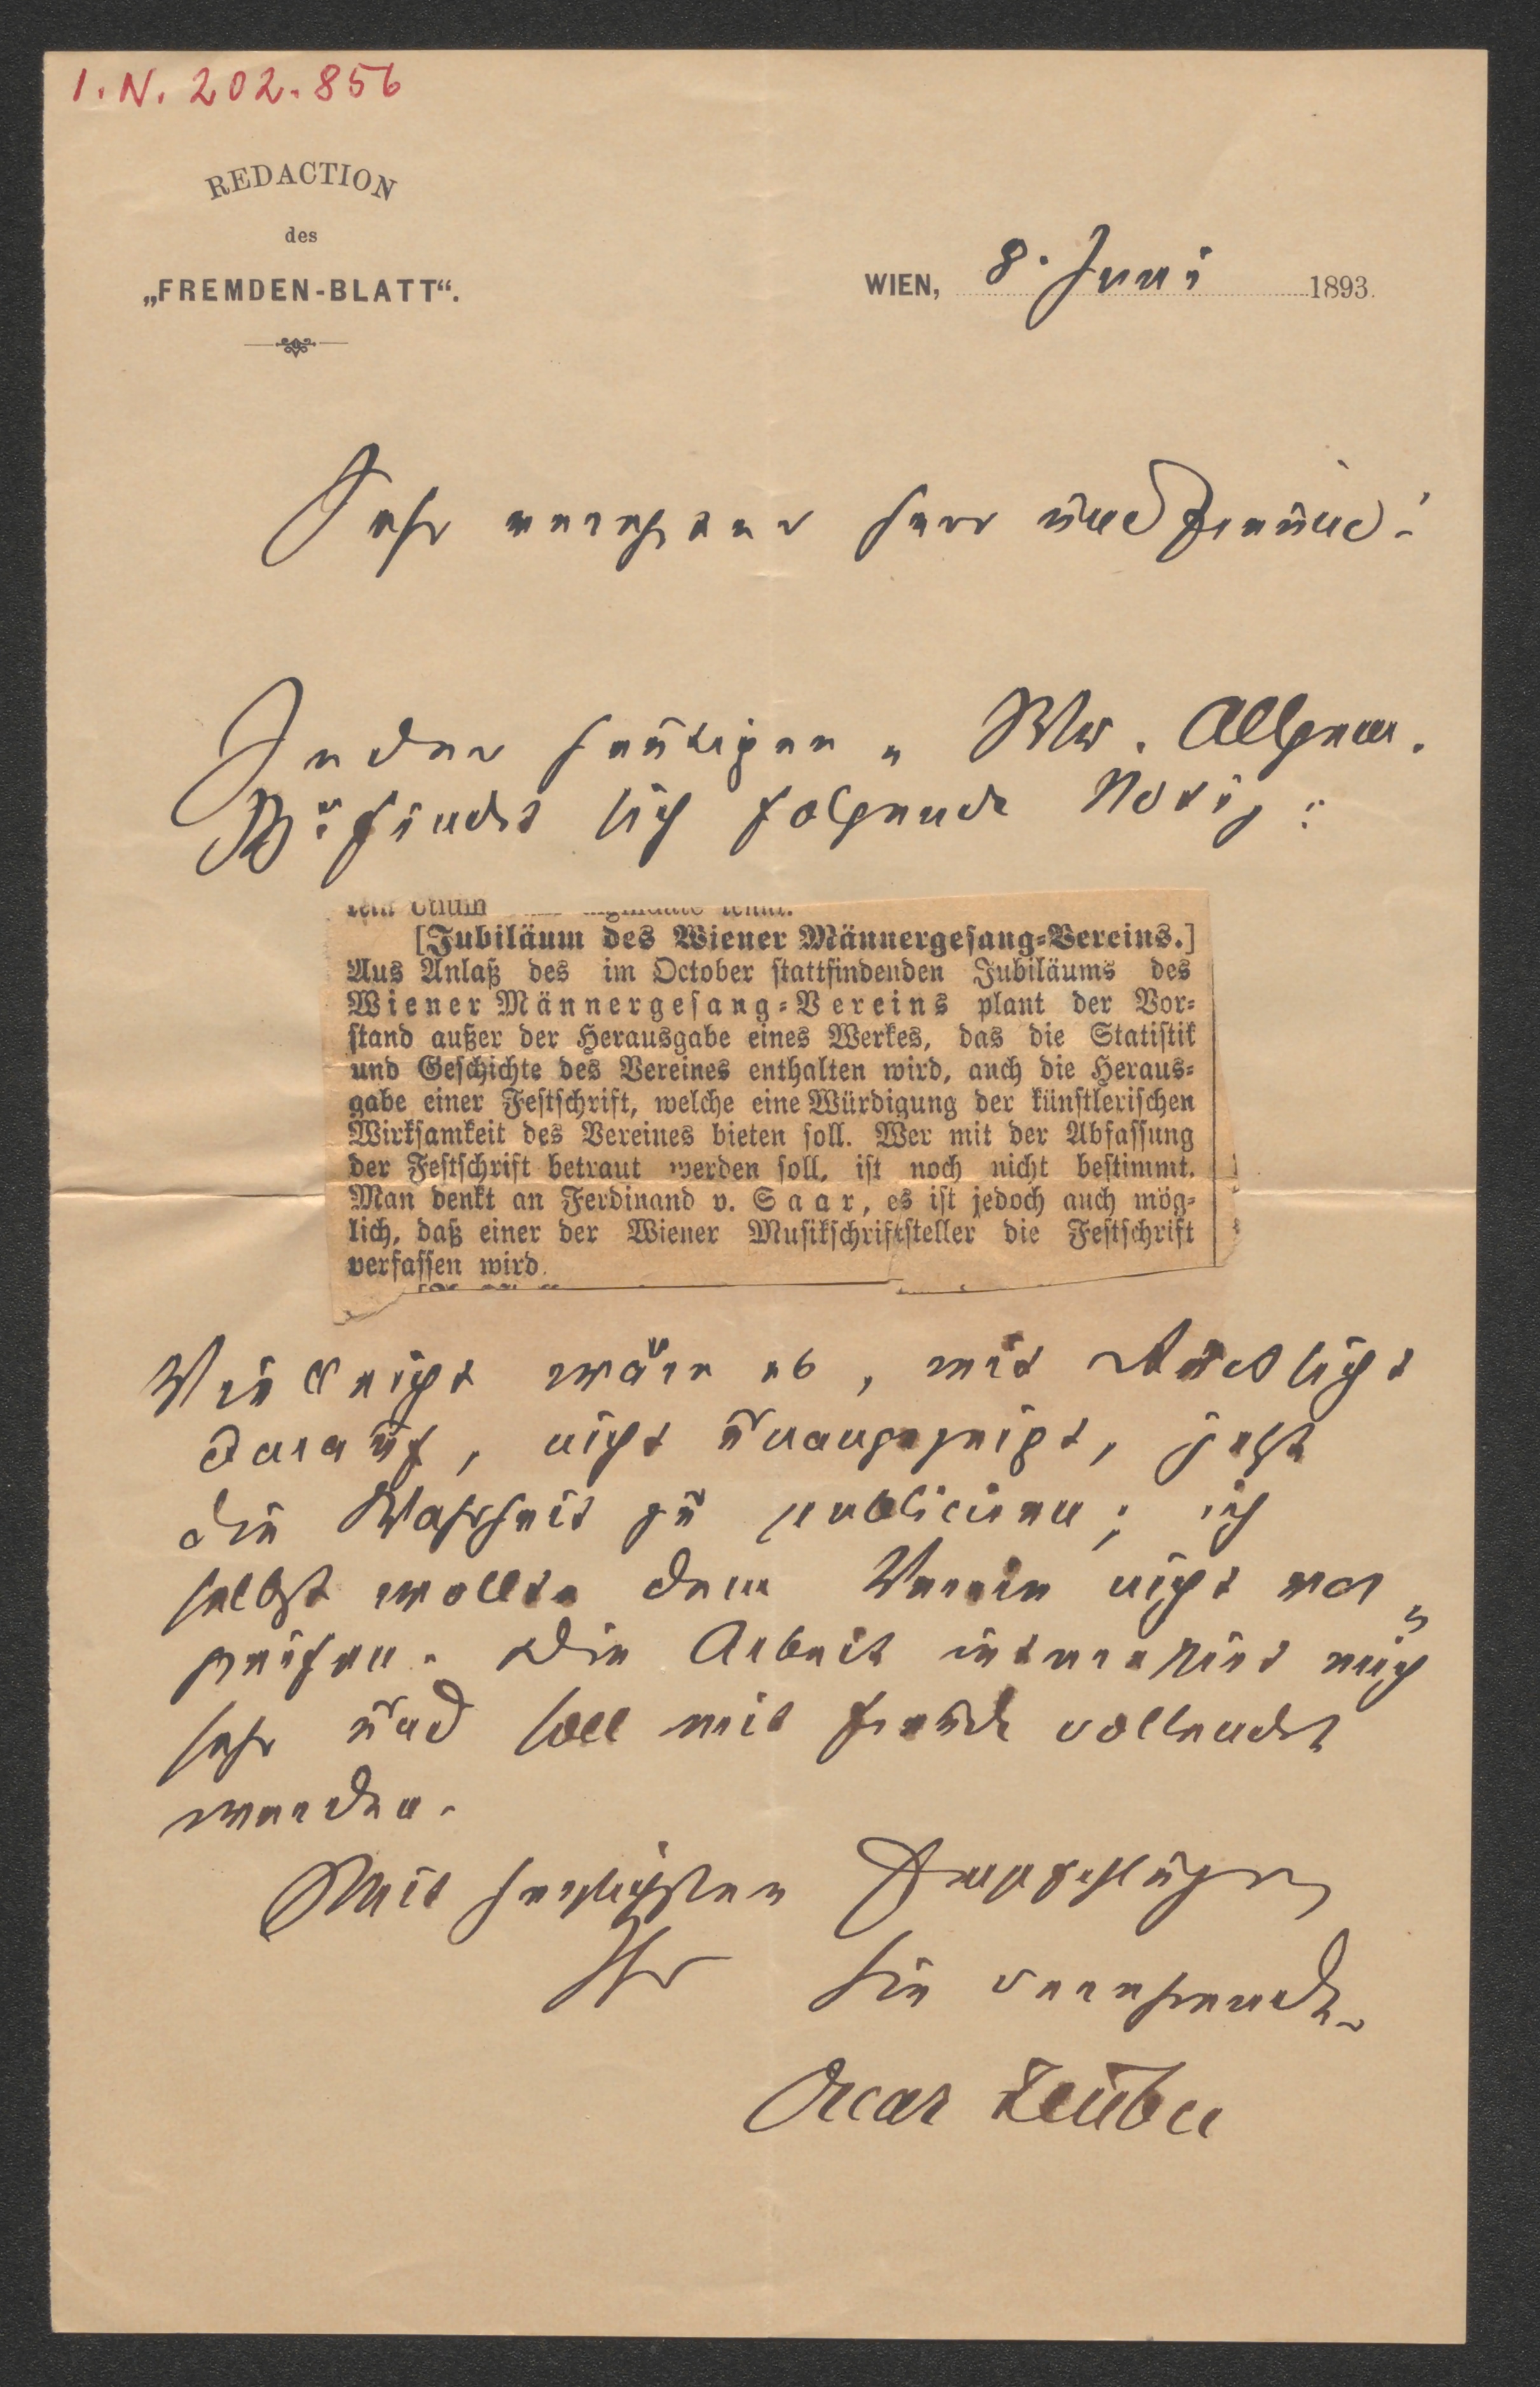 I. N. 202.856
REDACTION
des
„FREMDEN-BLATT“.
WIEN, 8. Juni 1893.
Sehr verehrter Herr und Freund!
In der heutigen „Wr. Allgem.
Z“ findet sich folgende Notiz:
[Jubiläum des Wiener Männergesang-Vereins.]
Aus Anlaß des im October stattfindenden Jubiläums des
Wiener Männergesang-Vereins plant der Vor-
stand außer der Herausgabe eines Werkes, das die Statistik
und Geschichte des Vereines enthalten wird, auch die Heraus-
gabe einer Festschrift, welche eine Würdigung der künstlerischen
Wirksamkeit des Vereines bieten soll. Wer mit der Abfassung
der Festschrift betraut werden soll, ist noch nicht bestimmt.
Man denkt an Ferdinand v. Saar, es ist jedoch auch mög-
lich, daß einer der Wiener Musikschriftsteller die Festschrift
verfassen wird.
Vielleicht wäre es, mit Rücksicht
darauf, nicht unangezeigt, jetzt
die Wahrheit zu publiciren; ich
selbst wollte dem Verein nicht vor-
greifen. Die Arbeit interessirt mich
sehr und soll mit Freude vollendet
werden.
Mit herzlichsten
Ihr Sie verehrender
Oscar Teuber